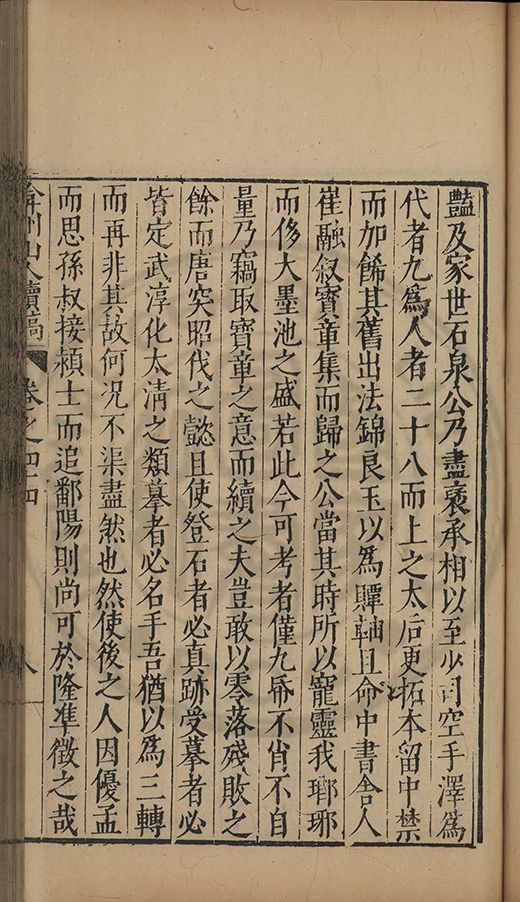 豔及家世石泉公乃盡裒承相以至少司空手澤爲
代者九爲人者二十八而上之太后更拓本留中禁
而加餙其舊出法錦良玉以爲贉軸且命中書舍人
崔融叙寶章集而歸之公當其時所以寵靈我瑯琊
而侈大墨池之盛若此今可考者僅九帋不肖不自
量乃竊取寶章之意而續之夫豈敢以零落殘敗之
餘而唐突昭伐之懿且使登石者必真跡受摹者必
皆定武淳化太清之類摹者必名手吾猶以爲三轉
而再非其故何况不渠盡然也然使後之人因優孟
而思孫叔接穎士而追鄱陽則尚可於隆準徵之哉
弇州山人續稿 卷之四十四 八